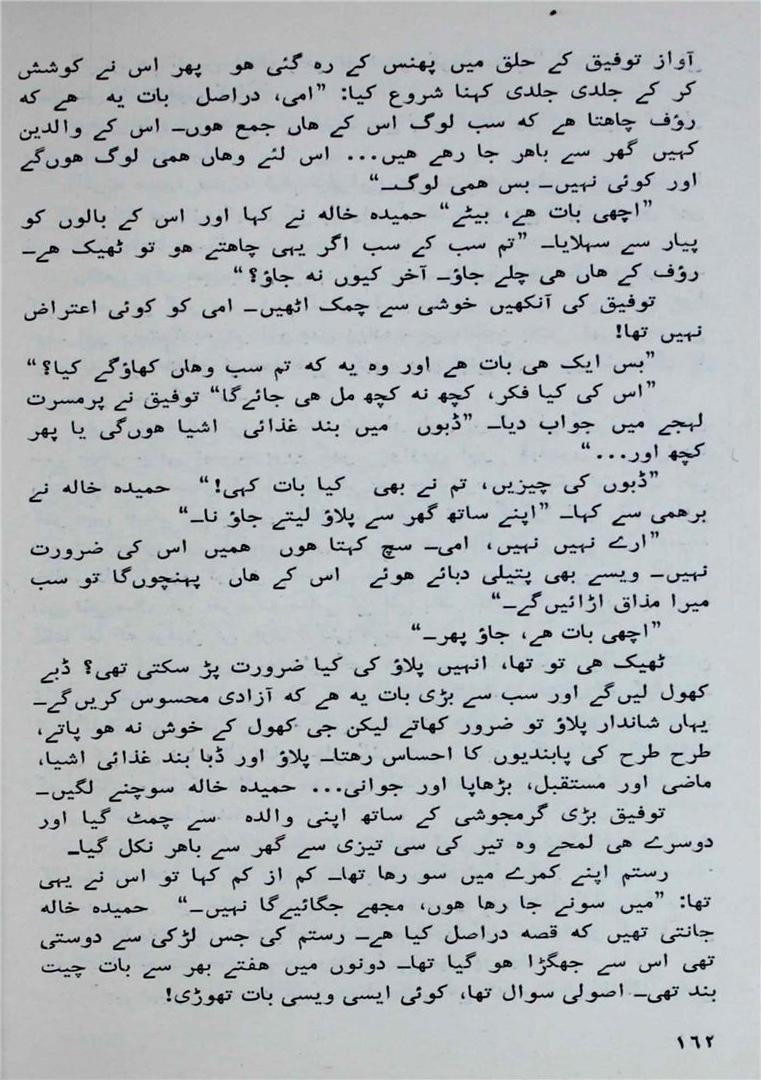 آواز توفیق کے حلق میں پھنس کے رہ گئی ھو پھر اس نے کوشش
کر کے جلدی جلدی کہنا شروع کیا: ”امی، دراصل بات یہ ھے کہ
رؤف چاھتا ھے کہ سب لوگ اس کے ھاں جمع ھوں۔ اس کے والدین
کہیں گھر سے باھر جا رھے ھیں... اس لئے وھاں ھمی لوگ ھوں‌گے
اور کوئی نہیں۔ بس ھمی لوگ۔“
”اچھی بات ھے، بیٹے“ حمیدہ خالہ نے کہا اور اس کے بالوں کو
پیار سے سہلایا۔ ”تم سب کے سب اگر یہی چاھتے ھو تو ٹھیک ھے۔
رؤف کے ھاں ھی چلے جاؤ۔ آخر کیوں نہ جاؤ؟“
توفیق کی آنکھیں خوشی سے چمک اٹھیں۔ امی کو کوئی اعتراض
نہیں تھا!
”بس ایک ھی بات ھے اور وہ یہ کہ تم سب وھاں کھاؤگے کیا؟“
”اس کی کیا فکر، کچھ نہ کچھ مل ھی جائے‌گا“ توفیق نے پرمسرت
لہجے میں جواب دیا۔ ”ڈبوں میں بند غذائی اشیا ھوں‌گی یا پھر
کچھ اور...“
”ڈبوں کی چیزیں، تم نے بھی کیا بات کہی!“ حمیدہ خالہ نے
برھمی سے کہا۔ ”اپنے ساتھ گھر سے پلاؤ لیتے جاؤ نا۔“
”ارے نہیں نہیں، امی۔ سچ کہتا ھوں ھمیں اس کی ضرورت
نہیں۔ ویسے بھی پتیلی دبائے ھوئے اس کے ھاں پہنچوں‌گا تو سب
میرا مذاق اڑائیں‌گے۔“
”اچھی بات ھے، جاؤ پھر۔“
ٹھیک ھی تو تھا، انہیں پلاؤ کی کیا ضرورت پڑ سکتی تھی؟ ڈبے
کھول لیں‌گے اور سب سے بڑی بات یہ ھے کہ آزادی محسوس کریں‌گے۔
یہاں شاندار پلاؤ تو ضرور کھاتے لیکن جی کھول کے خوش نہ ھو پاتے،
طرح طرح کی پابندیوں کا احساس رھتا۔ پلاؤ اور ڈبا بند غذائی اشیا،
ماضی اور مستقبل، بڑھاپا اور جوانی... حمیدہ خالہ سوچنے لگیں۔
توفیق بڑی گرمجوشی کے ساتھ اپنی والدہ سے چمٹ گیا اور
دوسرے ھی لمحے وہ تیر کی سی تیزی سے گھر سے باھر نکل گیا۔
رستم اپنے کمرے میں سو رھا تھا۔ کم از کم کہا تو اس نے یہی
تھا: ”میں سونے جا رھا ھوں، مجھے جگائیے‌گا نہیں۔“ حمیدہ خالہ
جانتی تھیں کہ قصہ دراصل کیا ھے۔ رستم کی جس لڑکی سے دوستی
تھی اس سے جھگڑا ھو گیا تھا۔ دونوں میں ھفتے بھر سے بات چیت
بند تھی۔ اصولی سوال تھا، کوئی ایسی ویسی بات تھوڑی!
١٦٢